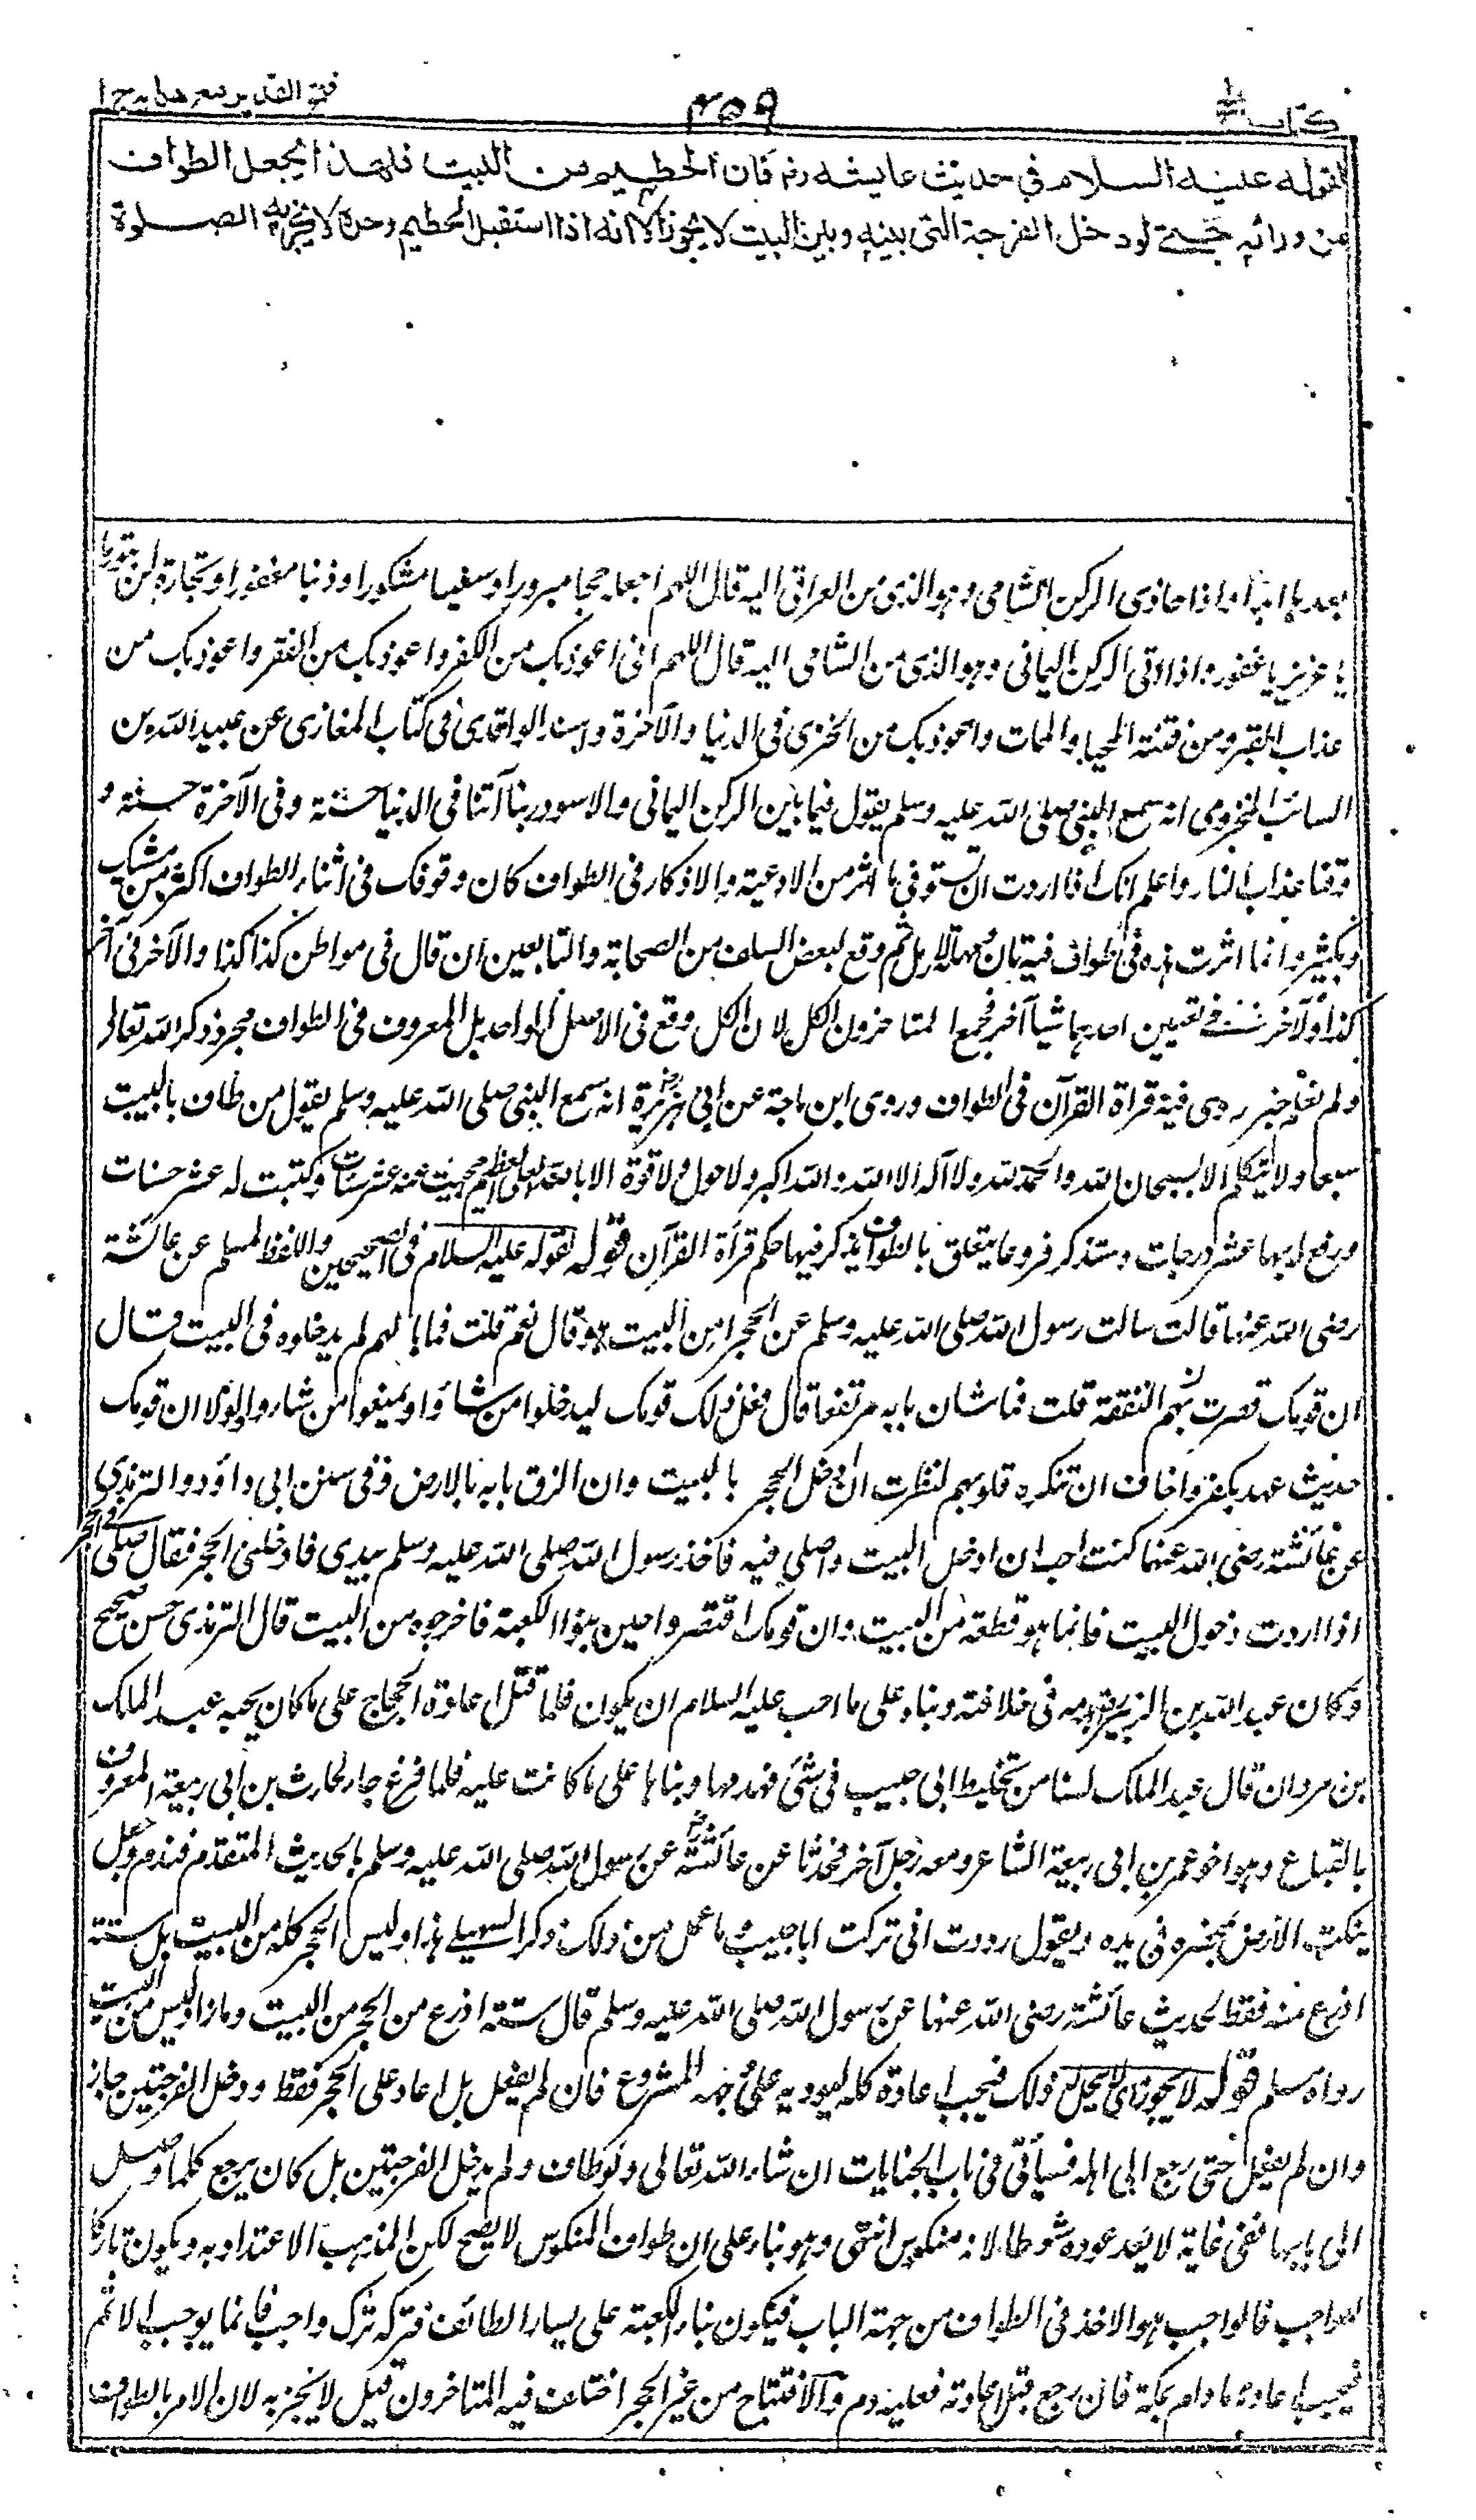 فتح القدير مع هدايه ج ا
٣٥٩
كتاب الحج
لقوله عليه السلام في حديث عايشه رض فان الحطيم من البيت فلهذا يجعل الطواف
من ورائه حتى لو دخل الفرجة التي بينه وبين البيت لا يجوز الا انه اذا استقبل الحطيم وحده لا تجزيه الصلوة
بعدها ابدا واذا حاذى الركن الشامى وهو الذى من العراقى اليه قال اللهم اجعله حجا مبرورا وسعيا مشكورا وذنبا مغفورا وتجارة لن تبور
يا عزيز يا غفور واذا اتى الركن اليمانى وهو الذى من الشامى اليه قال اللهم انى اعوذ بك من الكفر واعوذ بك من الفقر واعوذ بك من
عذاب القبر ومن فتنة المحيا والممات واعوذ بك من الخزى فى الدنيا والآخرة واسند الواقدى فى كتاب المغازى عن عبيد الله بن
السائب المخزومى انه سمع النبى صلى الله عليه وسلم يقول فيما بين الركن اليمانى والاسود ربنا آتنا فى الدنيا حسنة وفى الآخرة حسنة و
وقنا عذاب النار واعلم انك اذا اردت ان تستوفى ما اثر من الادعية والاذكار فى الطواف كان وقوفك فى اثناء الطواف اكثر من مشيك
بكثير وانما اثرت هذه فى طواف فيه تان ومهلة لا رمل ثم وقع لبعض السلف من الصحابة والتابعين ان قال فى مواطن كذا كذا والآخر فى آخر
كذا ولآخر فى نفس احدهما شيأ آخر فجمع المتاخرون الكل لا ان الكل وقع فى الاصل لواحد بل المعروف فى الطواف مجرد ذكر الله تعالى
ولم نعلم خبرا روى فيه قراة القرآن فى الطواف وروى ابن ماجة عن ابى هريرة انه سمع النبى صلى الله عليه وسلم يقول من طاف بالبيت
سبعا ولا يتكلم الا بسبحان الله والحمد لله ولا اله الا الله والله اكبر ولا حول ولا قوة الا بالله العلى العظيم محيت عنه عشر سيئات وكتبت له عشر حسنات
ورفع له بها عشر درجات وسنذكر فروعا يتعلق بالطواف يذكر فيها حكم قرأة القرآن قوله لقوله عليه السلام فى الصحيحين واللفظ لمسلم عن عائشة
رضى الله عنها قالت سالت رسول الله صلى الله عليه وسلم عن الحجر امن البيت هو قال نعم قلت فما بالهم لم يدخلوه فى البيت قال
ان قومك قصرت بهم النفقة قلت فما شان بابه مرتفعا قال فعل ذلك قومك ليدخلوا من شاؤا ويمنعوا من شاروا ولولا ان قومك
حديث عهد بكفر واخاف ان تنكره قلوبهم لنظرت ان ادخل الحجر بالبيت وان الزق بابه بالارض وفى سنن ابى داؤد والترمذى
عن عائشة رضى الله عنها كنت احب ان ادخل البيت واصلى فيه فاخذ رسول الله صلى الله عليه وسلم بيدى فادخلنى الحجر فقال صلى فى الحجر
اذا اردت دخول البيت فانما هو قطعة من البيت وان قومك اقتصروا حين بنوا الكعبة فاخرجوه من البيت قال الترمذى حسن صحيح
وكان عبد الله بن الزبير هدمه فى خلافته وبناه على ما احب عليه السلام ان يكون فلما قتل اعاده الحجاج على ما كان يحبه عبد الملك
بن مروان قال عبد الملك لسنا من تخليط ابى خبيب فى شئ فهدمها وبناها على ما كانت عليه فلما فرغ جاء الحارث بن ابى ربيعة المعروف
بالقباع وهو اخو عمر بن ابى ربيعة الشاعر ومعه رجل آخر فحدثا عن عائشة عن رسول الله صلى الله عليه وسلم بالحديث المتقدم فندم وجعل
ينكت الارض بمخصرة فى يده ويقول وددت انى تركت ابا خبيب وما عمل من ذلك ذكر السهيلى هذا وليس الحجر كله من البيت بل ستة
اذرع منه فقط لحديث عائشة رضى الله عنها عن رسول الله صلى الله عليه وسلم قال ستة اذرع من الحجر من البيت وما زاد ليس من البيت
رواه مسلم قوله لا يجوز اى لا يحل له ذلك فيجب اعادة كله ليوديه على وجهه المشروع فان لم يفعل بل اعاد على الحجر فقط ودخل الفرجتين جاز
وان لم يفعل حتى رجع الى اهله فسيأتى فى باب الجنايات ان شاء الله تعالى ولو طاف ولم يدخل الفرجتين بل كان يرجع كلما وصل
الى بابها ففى غاية لا يعد عوده شوطا لانه منكوس انتهى وهو بناء على ان طواف المنكوس لا يصح لكن المذهب الاعتداد به ويكون تاركا
للواجب فالواجب هو الاخذ فى الطواف من جهة الباب فيكون بناء الكعبة على يسار الطائف فتركه ترك واجب فانما يوجب الاثم
فيجب اعادته ما دام بمكة فان رجع قبل اعادته فعليه دم والافتتاح من غير الحجر اختلف فيه المتاخرون قيل لا يجزيه لان الامر بالطواف